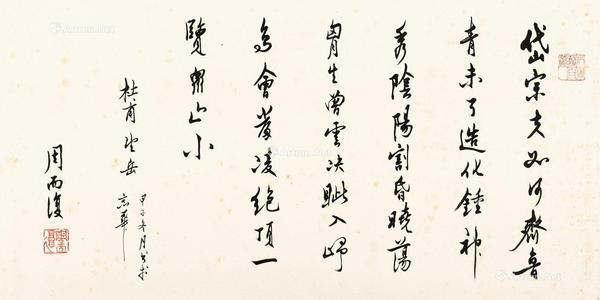 岱宗夫如何齊魯
青未了造化鍾神
秀陰陽割昏曉蕩
胷生曾雲决眦入歸
鳥會當凌絕頂一
覽衆山小
杜甫望岳
甲子冬月書於
京華
周而復